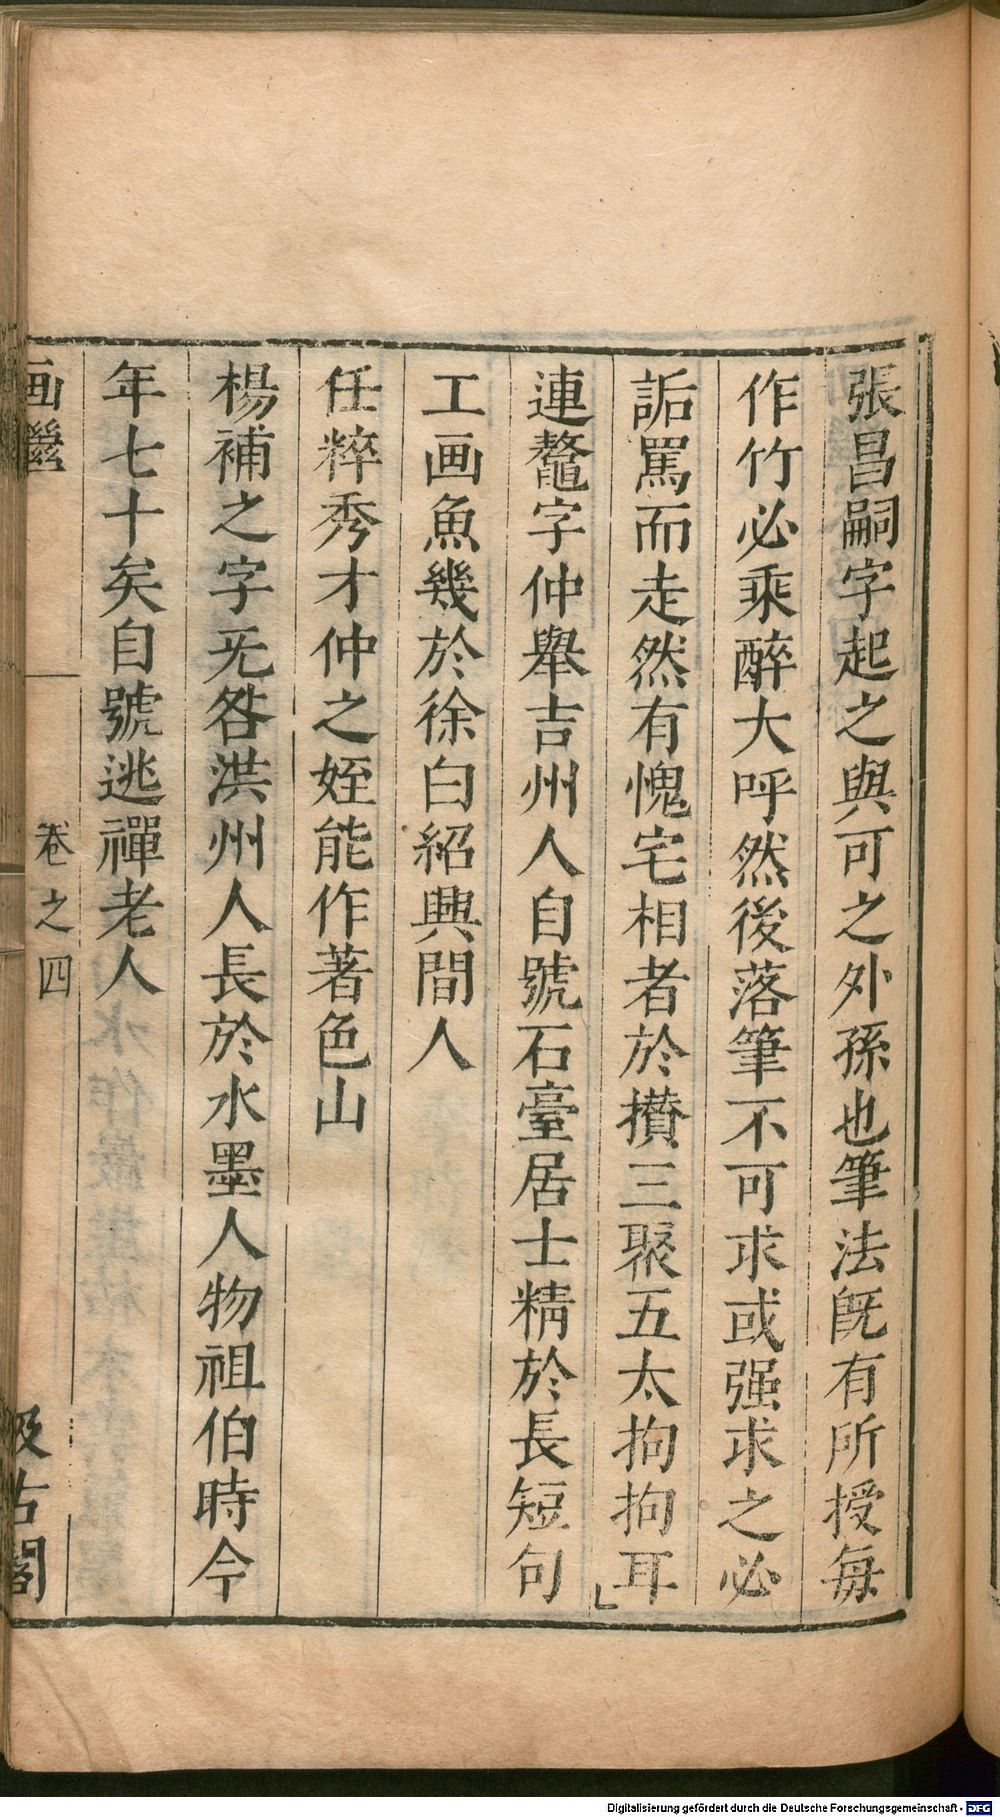 張昌嗣字起之與可之外孫也筆法旣有所授每
作竹必乘醉大呼然後落筆不可求或强求之必
詬罵而走然有愧宅相者於攢三聚五太拘拘耳
連鼇字仲舉吉州人自號石臺居士精於長短句
工画魚幾於徐白紹興間人
任粹秀才仲之姪能作著色山
楊補之字无咎洪州人長於水墨人物祖伯時今
年七十矣自號逃禪老人
画繼
卷之四
汲古閣
Digitalisierung gefördert durch die Deutsche Forschungsgemeinschaft - DFG